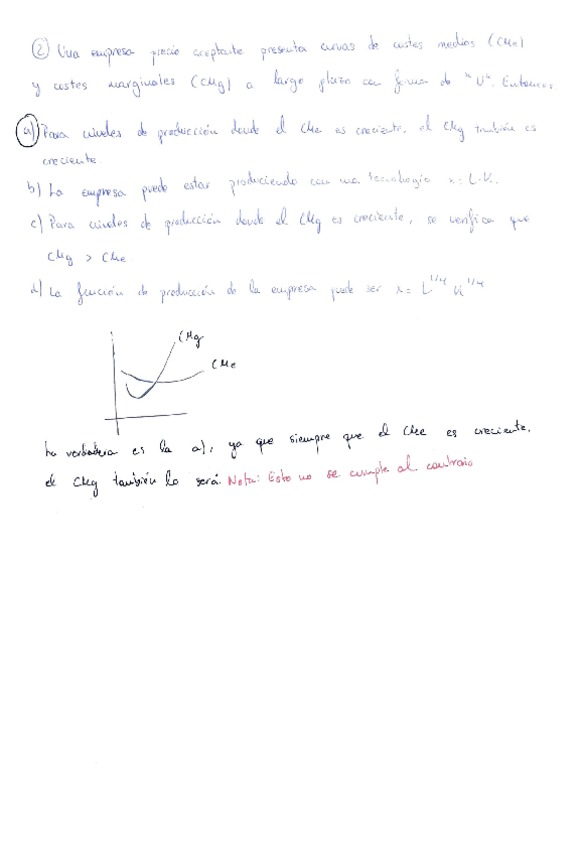 ② Una empresa precio aceptante presenta curvas de costes medios (CMe)
y costes marginales (CMg) a largo plazo con forma de "U". Entonces,
a) Para niveles de producción donde el CMe es creciente, el CMg también es
creciente.
b) La empresa puede estar produciendo con una tecnología x = L·K.
c) Para niveles de producción donde el CMg es creciente, se verifica que
CMg > CMe.
d) La función de producción de la empresa puede ser x = L^1/4 K^1/4
CMg
CMe
La verdadera es la a), ya que siempre que el CMe es creciente,
el CMg también lo será. Nota: Esto no se cumple al contrario